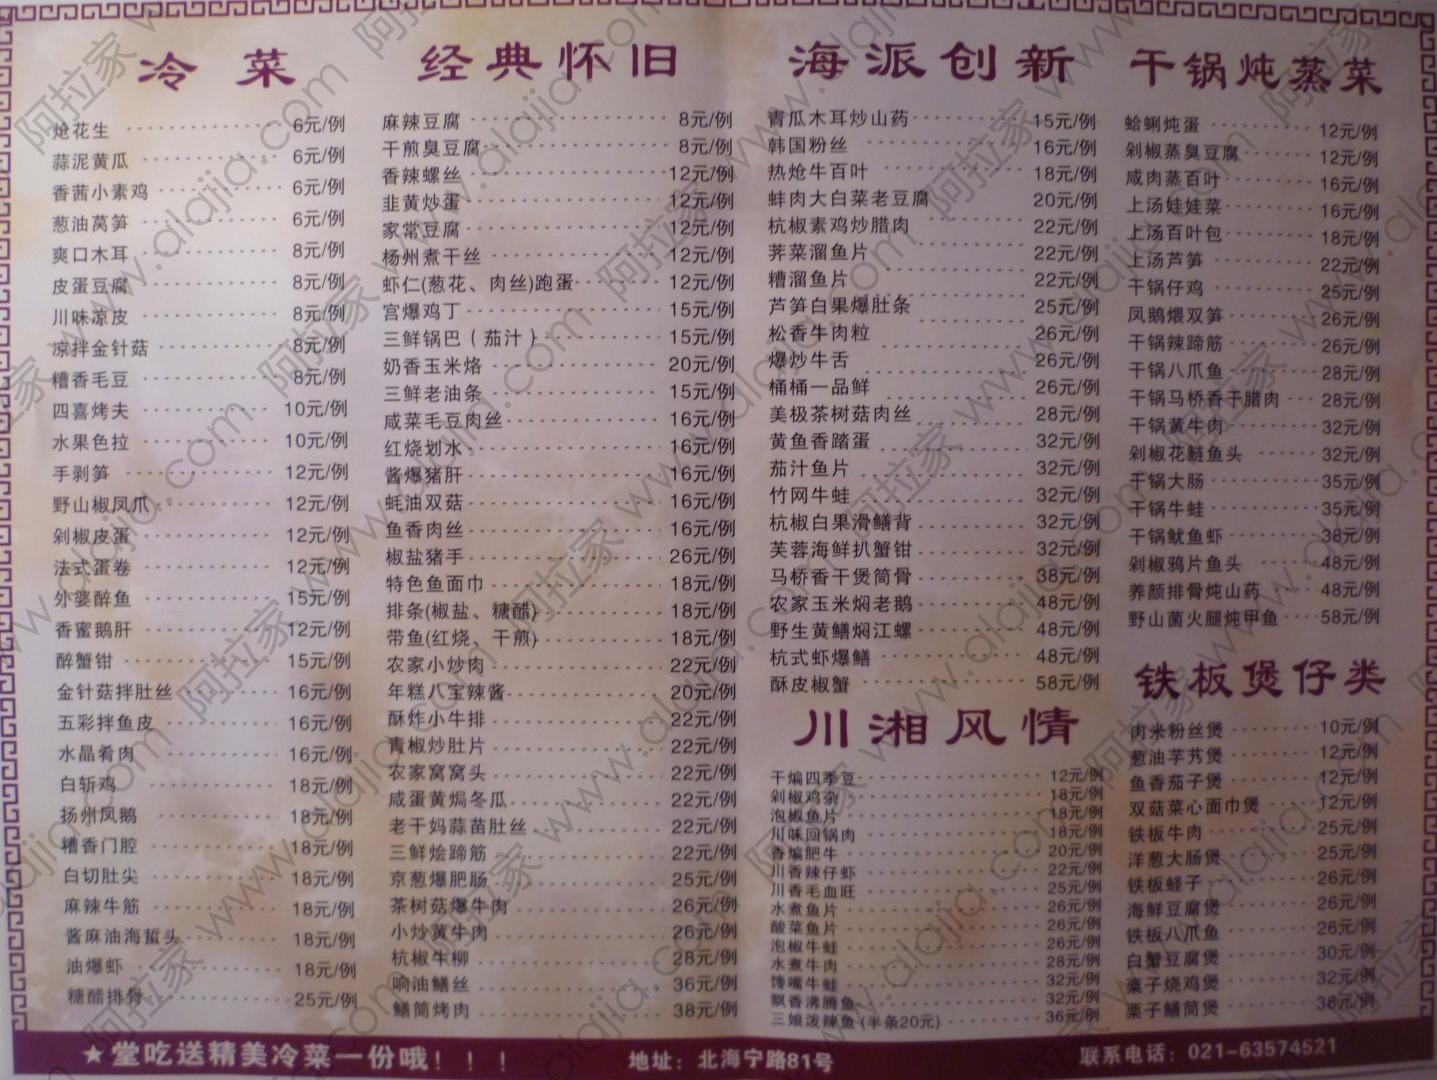 冷菜
炝花生 6元/例
蒜泥黄瓜 6元/例
香茜小素鸡 6元/例
葱油莴笋 6元/例
爽口木耳 8元/例
皮蛋豆腐 8元/例
川味凉皮 8元/例
凉拌金针菇 8元/例
糟香毛豆 8元/例
四喜烤夫 10元/例
水果色拉 10元/例
手剥笋 12元/例
野山椒凤爪 12元/例
剁椒皮蛋 12元/例
法式蛋卷 12元/例
外婆醉鱼 15元/例
香蜜鹅肝 12元/例
醉蟹钳 15元/例
金针菇拌肚丝 16元/例
五彩拌鱼皮 16元/例
水晶肴肉 16元/例
白斩鸡 18元/例
扬州凤鹅 18元/例
糟香门腔 18元/例
白切肚尖 18元/例
麻辣牛筋 18元/例
酱麻油海蜇头 18元/例
油爆虾 18元/例
糖醋排骨 25元/例
经典怀旧
麻辣豆腐 8元/例
干煎臭豆腐 8元/例
香辣螺丝 12元/例
韭黄炒蛋 12元/例
家常豆腐 12元/例
杨州煮干丝 12元/例
虾仁(葱花、肉丝)跑蛋 12元/例
宫爆鸡丁 15元/例
三鲜锅巴（茄汁） 15元/例
奶香玉米烙 20元/例
三鲜老油条 15元/例
咸菜毛豆肉丝 16元/例
红烧划水 16元/例
酱爆猪肝 16元/例
蚝油双菇 16元/例
鱼香肉丝 16元/例
椒盐猪手 26元/例
特色鱼面巾 18元/例
排条(椒盐、糖醋) 18元/例
带鱼(红烧、干煎) 18元/例
农家小炒肉 22元/例
年糕八宝辣酱 20元/例
酥炸小牛排 22元/例
青椒炒肚片 22元/例
农家窝窝头 22元/例
咸蛋黄焗冬瓜 22元/例
老干妈蒜苗肚丝 22元/例
三鲜烩蹄筋 22元/例
京葱爆肥肠 25元/例
茶树菇爆牛肉 26元/例
小炒黄牛肉 26元/例
杭椒牛柳 28元/例
响油鳝丝 36元/例
鳝筒烤肉 38元/例
海派创新
青瓜木耳炒山药 15元/例
韩国粉丝 16元/例
热炝牛百叶 18元/例
蚌肉大白菜老豆腐 20元/例
杭椒素鸡炒腊肉 22元/例
荠菜溜鱼片 22元/例
糟溜鱼片 22元/例
芦笋白果爆肚条 25元/例
松香牛肉粒 26元/例
爆炒牛舌 26元/例
桶桶一品鲜 26元/例
美极茶树菇肉丝 28元/例
黄鱼香踏蛋 32元/例
茄汁鱼片 32元/例
竹网牛蛙 32元/例
杭椒白果滑鳝背 32元/例
芙蓉海鲜扒蟹钳 32元/例
马桥香干煲筒骨 38元/例
农家玉米焖老鹅 48元/例
野生黄鳝焖江螺 48元/例
杭式虾爆鳝 48元/例
酥皮椒蟹 58元/例
川湘风情
干煸四季豆 12元/例
剁椒鸡杂 18元/例
泡椒鱼片 18元/例
川味回锅肉 18元/例
香煸肥牛 20元/例
川香辣仔虾 22元/例
川香毛血旺 25元/例
水煮鱼片 26元/例
酸菜鱼片 26元/例
泡椒牛蛙 26元/例
水煮牛肉 28元/例
馋嘴牛蛙 32元/例
飘香沸腾鱼 32元/例
三娘泼辣鱼(半条20元) 36元/例
干锅炖蒸菜
蛤蜊炖蛋 12元/例
剁椒蒸臭豆腐 12元/例
咸肉蒸百叶 16元/例
上汤娃娃菜 16元/例
上汤百叶包 18元/例
上汤芦笋 22元/例
干锅仔鸡 25元/例
凤鹅煨双笋 26元/例
干锅辣蹄筋 26元/例
干锅八爪鱼 28元/例
干锅马桥香干腊肉 28元/例
干锅黄牛肉 32元/例
剁椒花鲢鱼头 32元/例
干锅大肠 35元/例
干锅牛蛙 35元/例
干锅鱿鱼虾 38元/例
剁椒鸦片鱼头 48元/例
养颜排骨炖山药 48元/例
野山菌火腿炖甲鱼 58元/例
铁板煲仔类
肉米粉丝煲 10元/例
葱油芋艿煲 12元/例
鱼香茄子煲 12元/例
双菇菜心面巾煲 12元/例
铁板牛肉 25元/例
洋葱大肠煲 25元/例
铁板蛏子 26元/例
海鲜豆腐煲 26元/例
铁板八爪鱼 26元/例
白蟹豆腐煲 30元/例
栗子烧鸡煲 32元/例
栗子鳝筒煲 38元/例
★堂吃送精美冷菜一份哦！！！ 地址：北海宁路81号 联系电话：021-63574521
阿拉家 www.alajia.com